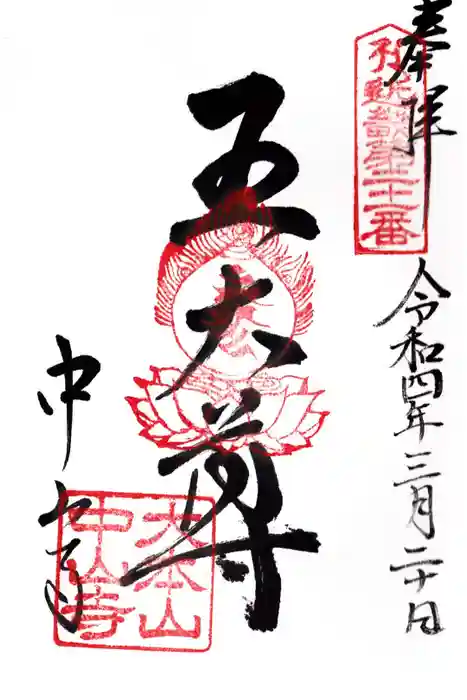 奉拝
第二十一番
令和四年三月二十日
五大尊
中山寺
大本山
中山寺